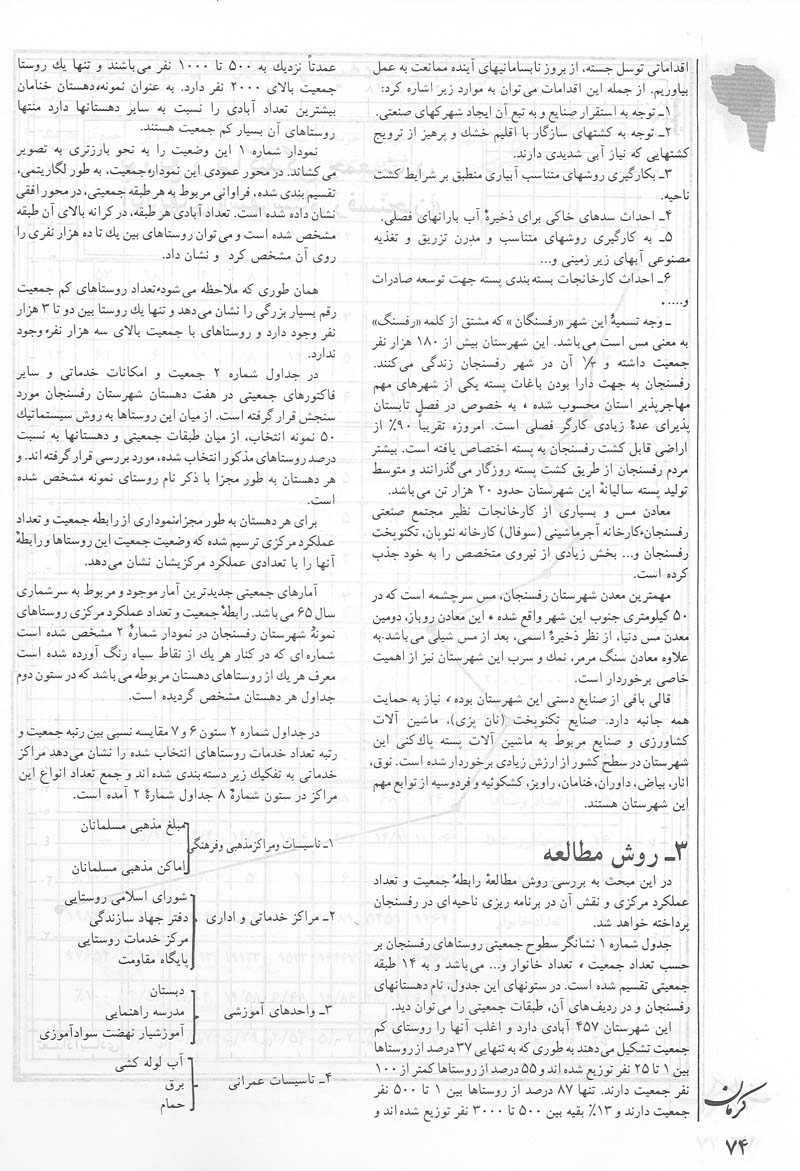 اقداماتی توسل جسته، از بروز نابسامانیهای آینده ممانعت به عمل
بیاوریم. از جمله این اقدامات می‌توان به موارد زیر اشاره کرد:
۱ـ توجه به استقرار صنایع و به تبع آن ایجاد شهرکهای صنعتی.
۲ـ توجه به کشتهای سازگار با اقلیم خشك و پرهیز از ترویج
کشتهایی که نیاز آبی شدیدی دارند.
۳ـ بکارگیری روشهای متناسب آبیاری منطبق بر شرایط کشت
ناحیه.
۴ـ احداث سدهای خاکی برای ذخیرهٔ آب بارانهای فصلی.
۵ـ به کارگیری روشهای متناسب و مدرن تزریق و تغذیه
مصنوعی آبهای زیر زمینی و...
۶ـ احداث کارخانجات بسته‌بندی پسته جهت توسعه صادرات
و.....
ـ وجه تسمیهٔ این شهر «رفسنگان» که مشتق از کلمه «رفسنگ»
به معنی مس است می‌باشد. این شهرستان بیش از ۱۸۰ هزار نفر
جمعیت داشته و آن در شهر رفسنجان زندگی می‌کنند.
رفسنجان به جهت دارا بودن باغات پسته یکی از شهرهای مهم
مهاجرپذیر استان محسوب شده ، به خصوص در فصل تابستان
پذیرای عدهٔ زیادی کارگر فصلی است. امروزه تقریباً ۹۰٪ از
اراضی قابل کشت رفسنجان به پسته اختصاص یافته است. بیشتر
مردم رفسنجان از طریق کشت پسته روزگار می‌گذرانند و متوسط
تولید پسته سالیانهٔ این شهرستان حدود ۲۰ هزار تن می‌باشد.
معادن مس و بسیاری از کارخانجات نظیر مجتمع صنعتی
رفسنجان،کارخانه آجرماشینی (سوفال) کارخانه نئوپان، تکنوپخت
رفسنجان و... بخش زیادی از نیروی متخصص را به خود جذب
کرده است.
مهمترین معدن شهرستان رفسنجان، مس سرچشمه است که در
۵۰ کیلومتری جنوب این شهر واقع شده ، این معادن روباز، دومین
معدن مس دنیا، از نظر ذخیرهٔ اسمی، بعد از مس شیلی می‌باشد.به
علاوه معادن سنگ مرمر، نمك و سرب این شهرستان نیز از اهمیت
خاصی برخوردار است.
قالی بافی از صنایع دستی این شهرستان بوده ، نیاز به حمایت
همه جانبه دارد. صنایع تکنوپخت (نان پزی)، ماشین آلات
کشاورزی و صنایع مربوط به ماشین آلات پسته پاك‌کنی این
شهرستان در سطح کشور از ارزش زیادی برخوردار شده است. نوق،
انار، بیاض، داوران، خنامان، راویز، کشکوئیه و فردوسیه از توابع مهم
این شهرستان هستند.
۳ـ روش مطالعه
در این مبحث به بررسی روش مطالعهٔ رابطهٔ جمعیت و تعداد
عملکرد مرکزی و نقش آن در برنامه ریزی ناحیه‌ای در رفسنجان
پرداخته خواهد شد.
جدول شماره ۱ نشانگر سطوح جمعیتی روستاهای رفسنجان بر
حسب تعداد جمعیت ، تعداد خانوار و... می‌باشد و به ۱۴ طبقه
جمعیتی تقسیم شده است. در ستونهای این جدول، نام دهستانهای
رفسنجان و در ردیف‌های آن، طبقات جمعیتی را می‌توان دید.
این شهرستان ۴۵۷ آبادی دارد و اغلب آنها را روستای کم
جمعیت تشکیل می‌دهند به طوری که به تنهایی ۳۷ درصد از روستاها
بین ۱ تا ۲۵ نفر توزیع شده اند و ۵۵ درصد از روستاها کمتر از ۱۰۰
نفر جمعیت دارند. تنها ۸۷ درصد از روستاها بین ۱ تا ۵۰۰ نفر
جمعیت دارند و ۱۳٪ بقیه بین ۵۰۰ تا ۳۰۰۰ نفر توزیع شده اند و
عمدتاً نزدیك به ۵۰۰ تا ۱۰۰۰ نفر می‌باشند و تنها یك روستا
جمعیت بالای ۲۰۰۰ نفر دارد. به عنوان نمونه،دهستان خنامان
بیشترین تعداد آبادی را نسبت به سایر دهستانها دارد منتها
روستاهای آن بسیار کم جمعیت هستند.
نمودار شماره ۱ این وضعیت را به نحو بارزتری به تصویر
می‌کشاند. در محور عمودی این نمودار،جمعیت، به طور لگاریتمی،
تقسیم بندی شده، فراوانی مربوط به هر طبقه جمعیتی، در محور افقی
نشان داده شده است. تعداد آبادی هر طبقه، در کرانه بالای آن طبقه
مشخص شده است و می‌توان روستاهای بین یك تا ده هزار نفری را
روی آن مشخص کرد و نشان داد.
همان طوری که ملاحظه می‌شود،تعداد روستاهای کم جمعیت
رقم بسیار بزرگی را نشان می‌دهد و تنها یك روستا بین دو تا ۳ هزار
نفر وجود دارد و روستاهای با جمعیت بالای سه هزار نفر،وجود
ندارد.
در جداول شماره ۲ جمعیت و امکانات خدماتی و سایر
فاکتورهای جمعیتی در هفت دهستان شهرستان رفسنجان مورد
سنجش قرار گرفته است. از میان این روستاها به روش سیستماتیك
۵۰ نمونه انتخاب، از میان طبقات جمعیتی و دهستانها به نسبت
درصد روستاهای مذکور انتخاب شده، مورد بررسی قرار گرفته اند. و
هر دهستان به طور مجزا با ذکر نام روستای نمونه مشخص شده
است.
برای هر دهستان به طور مجزا،نموداری از رابطه جمعیت و تعداد
عملکرد مرکزی ترسیم شده که وضعیت جمعیت این روستاها و رابطهٔ
آنها را با تعدادی عملکرد مرکزیشان نشان می‌دهد.
آمارهای جمعیتی جدیدترین آمار موجود و مربوط به سرشماری
سال ۶۵ می‌باشد. رابطهٔ جمعیت و تعداد عملکرد مرکزی روستاهای
نمونهٔ شهرستان رفسنجان در نمودار شمارهٔ ۲ مشخص شده است
شماره‌ای که در کنار هر یك از نقاط سیاه رنگ آورده شده است
معرف هر یك از روستاهای دهستان مربوطه می‌باشد که در ستون دوم
جداول هر دهستان مشخص گردیده است.
در جداول شماره ۲ ستون ۶ و ۷ مقایسه نسبی بین رتبه جمعیت و
رتبه تعداد خدمات روستاهای انتخاب شده را نشان می‌دهد مراکز
خدماتی به تفکیك زیر دسته‌بندی شده‌اند و جمع تعداد انواع این
مراکز در ستون شمارهٔ ۸ جداول شمارهٔ ۲ آمده است.
۱ـ تاسیسات ومراکزمذهبی وفرهنگی
مبلغ مذهبی مسلمانان
اماکن مذهبی مسلمانان
۲ـ مراکز خدماتی و اداری
شورای اسلامی روستایی
دفتر جهاد سازندگی
مرکز خدمات روستایی
پایگاه مقاومت
۳ـ واحدهای آموزشی
دبستان
مدرسه راهنمایی
آموزشیار نهضت سوادآموزی
۴ـ تاسیسات عمرانی
آب لوله کشی
برق
حمام
کرمان
۷۴